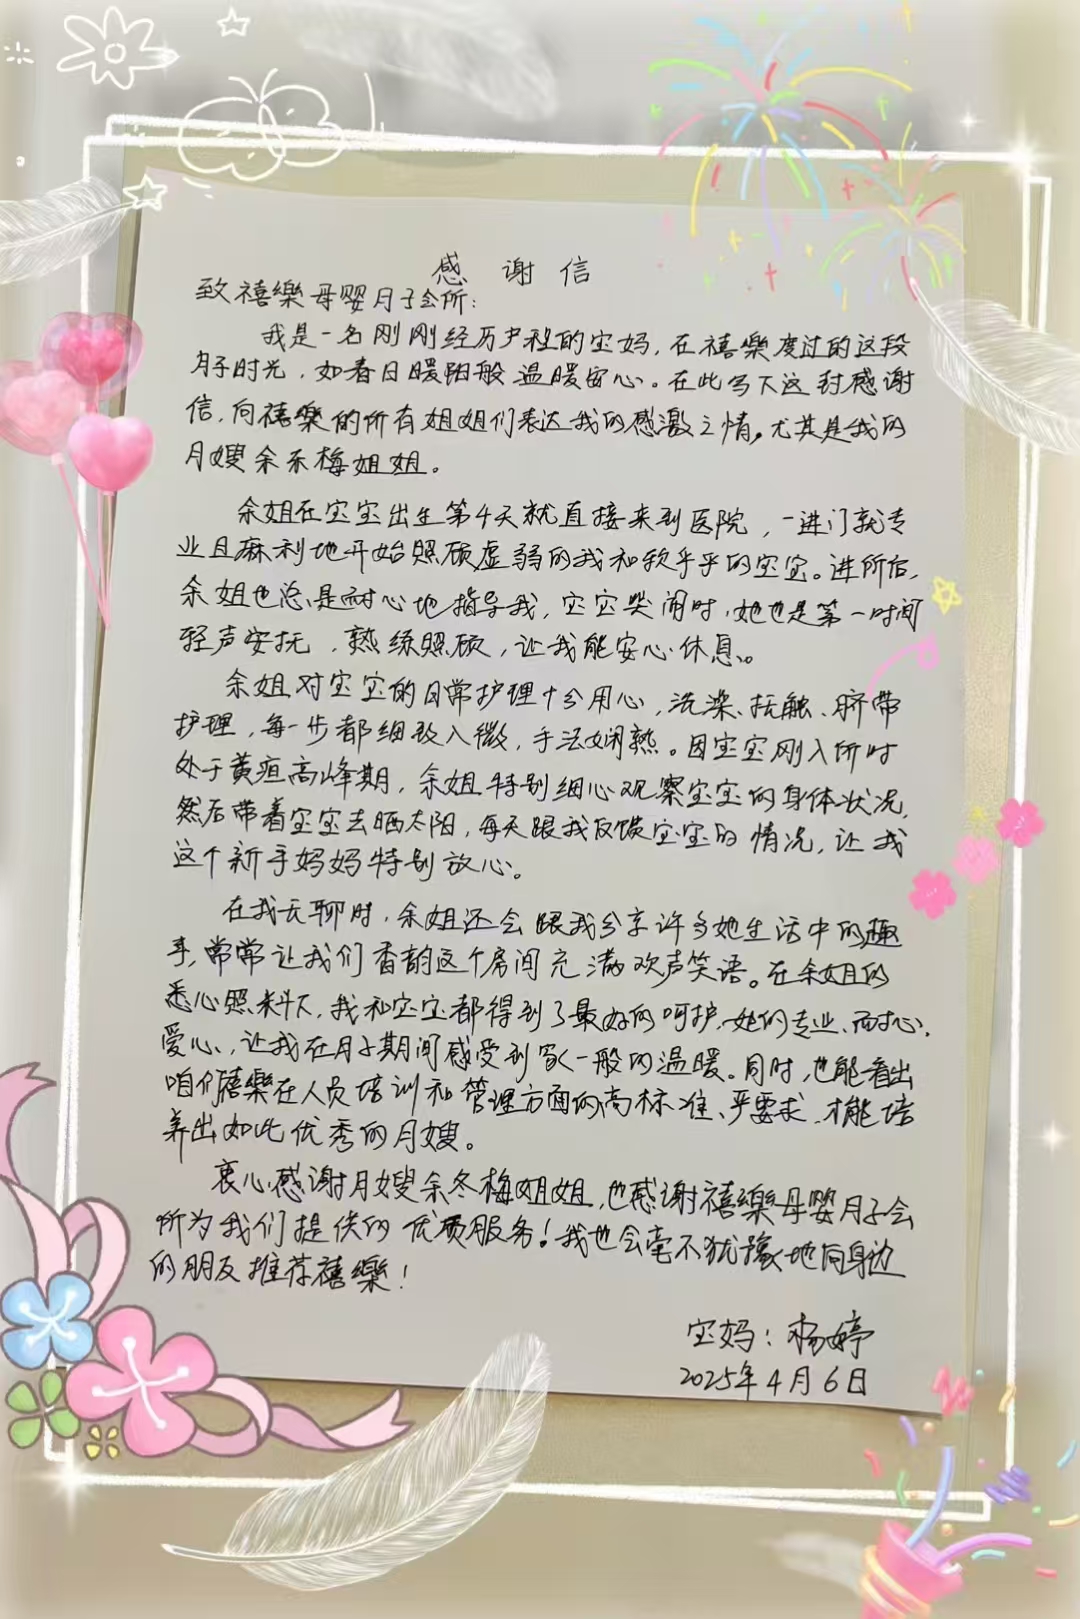 感谢信
致禧樂母婴月子会所：
我是一名刚刚经历产程的宝妈，在禧樂度过的这段
月子时光，如春日暖阳般温暖安心。在此写下这封感谢
信，向禧樂的所有姐姐们表达我的感激之情。尤其是我的
月嫂余冬梅姐姐。
余姐在宝宝出生第4天就直接来到医院，一进门就专
业且麻利地开始照顾虚弱的我和软乎乎的宝宝。进所后，
余姐也总是耐心地指导我，宝宝哭闹时，她也是第一时间
轻声安抚，熟练照顾，让我能安心休息。
余姐对宝宝的日常护理十分用心，洗澡、抚触、脐带
护理，每一步都细致入微，手法娴熟。因宝宝刚入所时
处于黄疸高峰期，余姐特别细心观察宝宝的身体状况，
然后带着宝宝去晒太阳，每天跟我反馈宝宝的情况，让我
这个新手妈妈特别放心。
在我无聊时，余姐还会跟我分享许多她生活中的趣
事，常常让我们香韵这个房间充满欢声笑语。在余姐的
悉心照料下，我和宝宝都得到了最好的呵护，她的专业、耐心、
爱心，让我在月子期间感受到家一般的温暖。同时，也能看出
咱们禧樂在人员培训和管理方面的高标准、严要求，才能培
养出如此优秀的月嫂。
衷心感谢月嫂余冬梅姐姐，也感谢禧樂母婴月子会
所为我们提供的优质服务！我也会毫不犹豫地向身边
的朋友推荐禧樂！
宝妈：杨婷
2025年4月6日